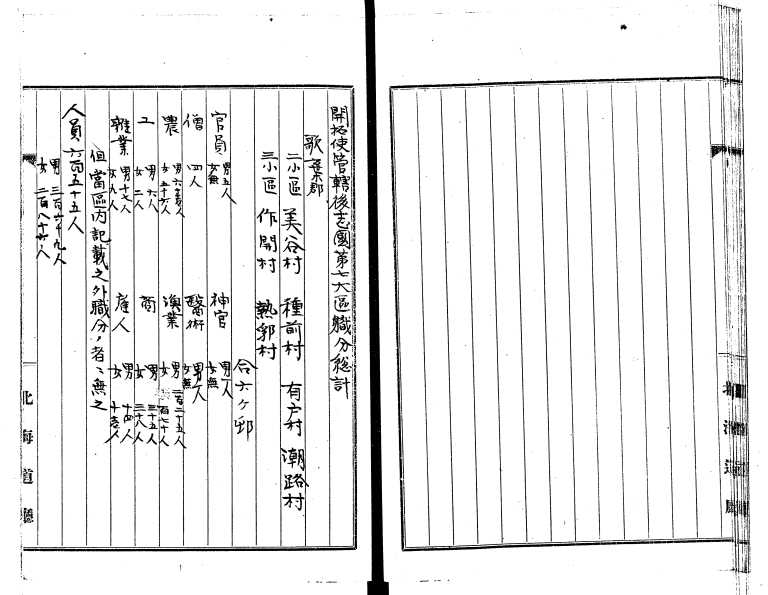 開拓使管轄後志國第七大區職分総計
歌棄郡
二小區 美谷村 種前村 有戸村 潮路村
三小區 作開村 熱郛村
合六ケ邨
官員 男五人 女無 神官 男一人 女無
僧 四人 醫術 男一人 女無
農 男六十壱人 女五十六人 漁業 男二百二十五人 女百七十人
工 男六人 女二人 商 男三十五人 女三十八人
雜業 男十七人 女九人 雇人 男十四人 女十壱人
但當區内記載之外職分ノ者ハ無之
人員六百五十五人
男三百六十九人
女二百八十六人
北海道廳
北海道廳